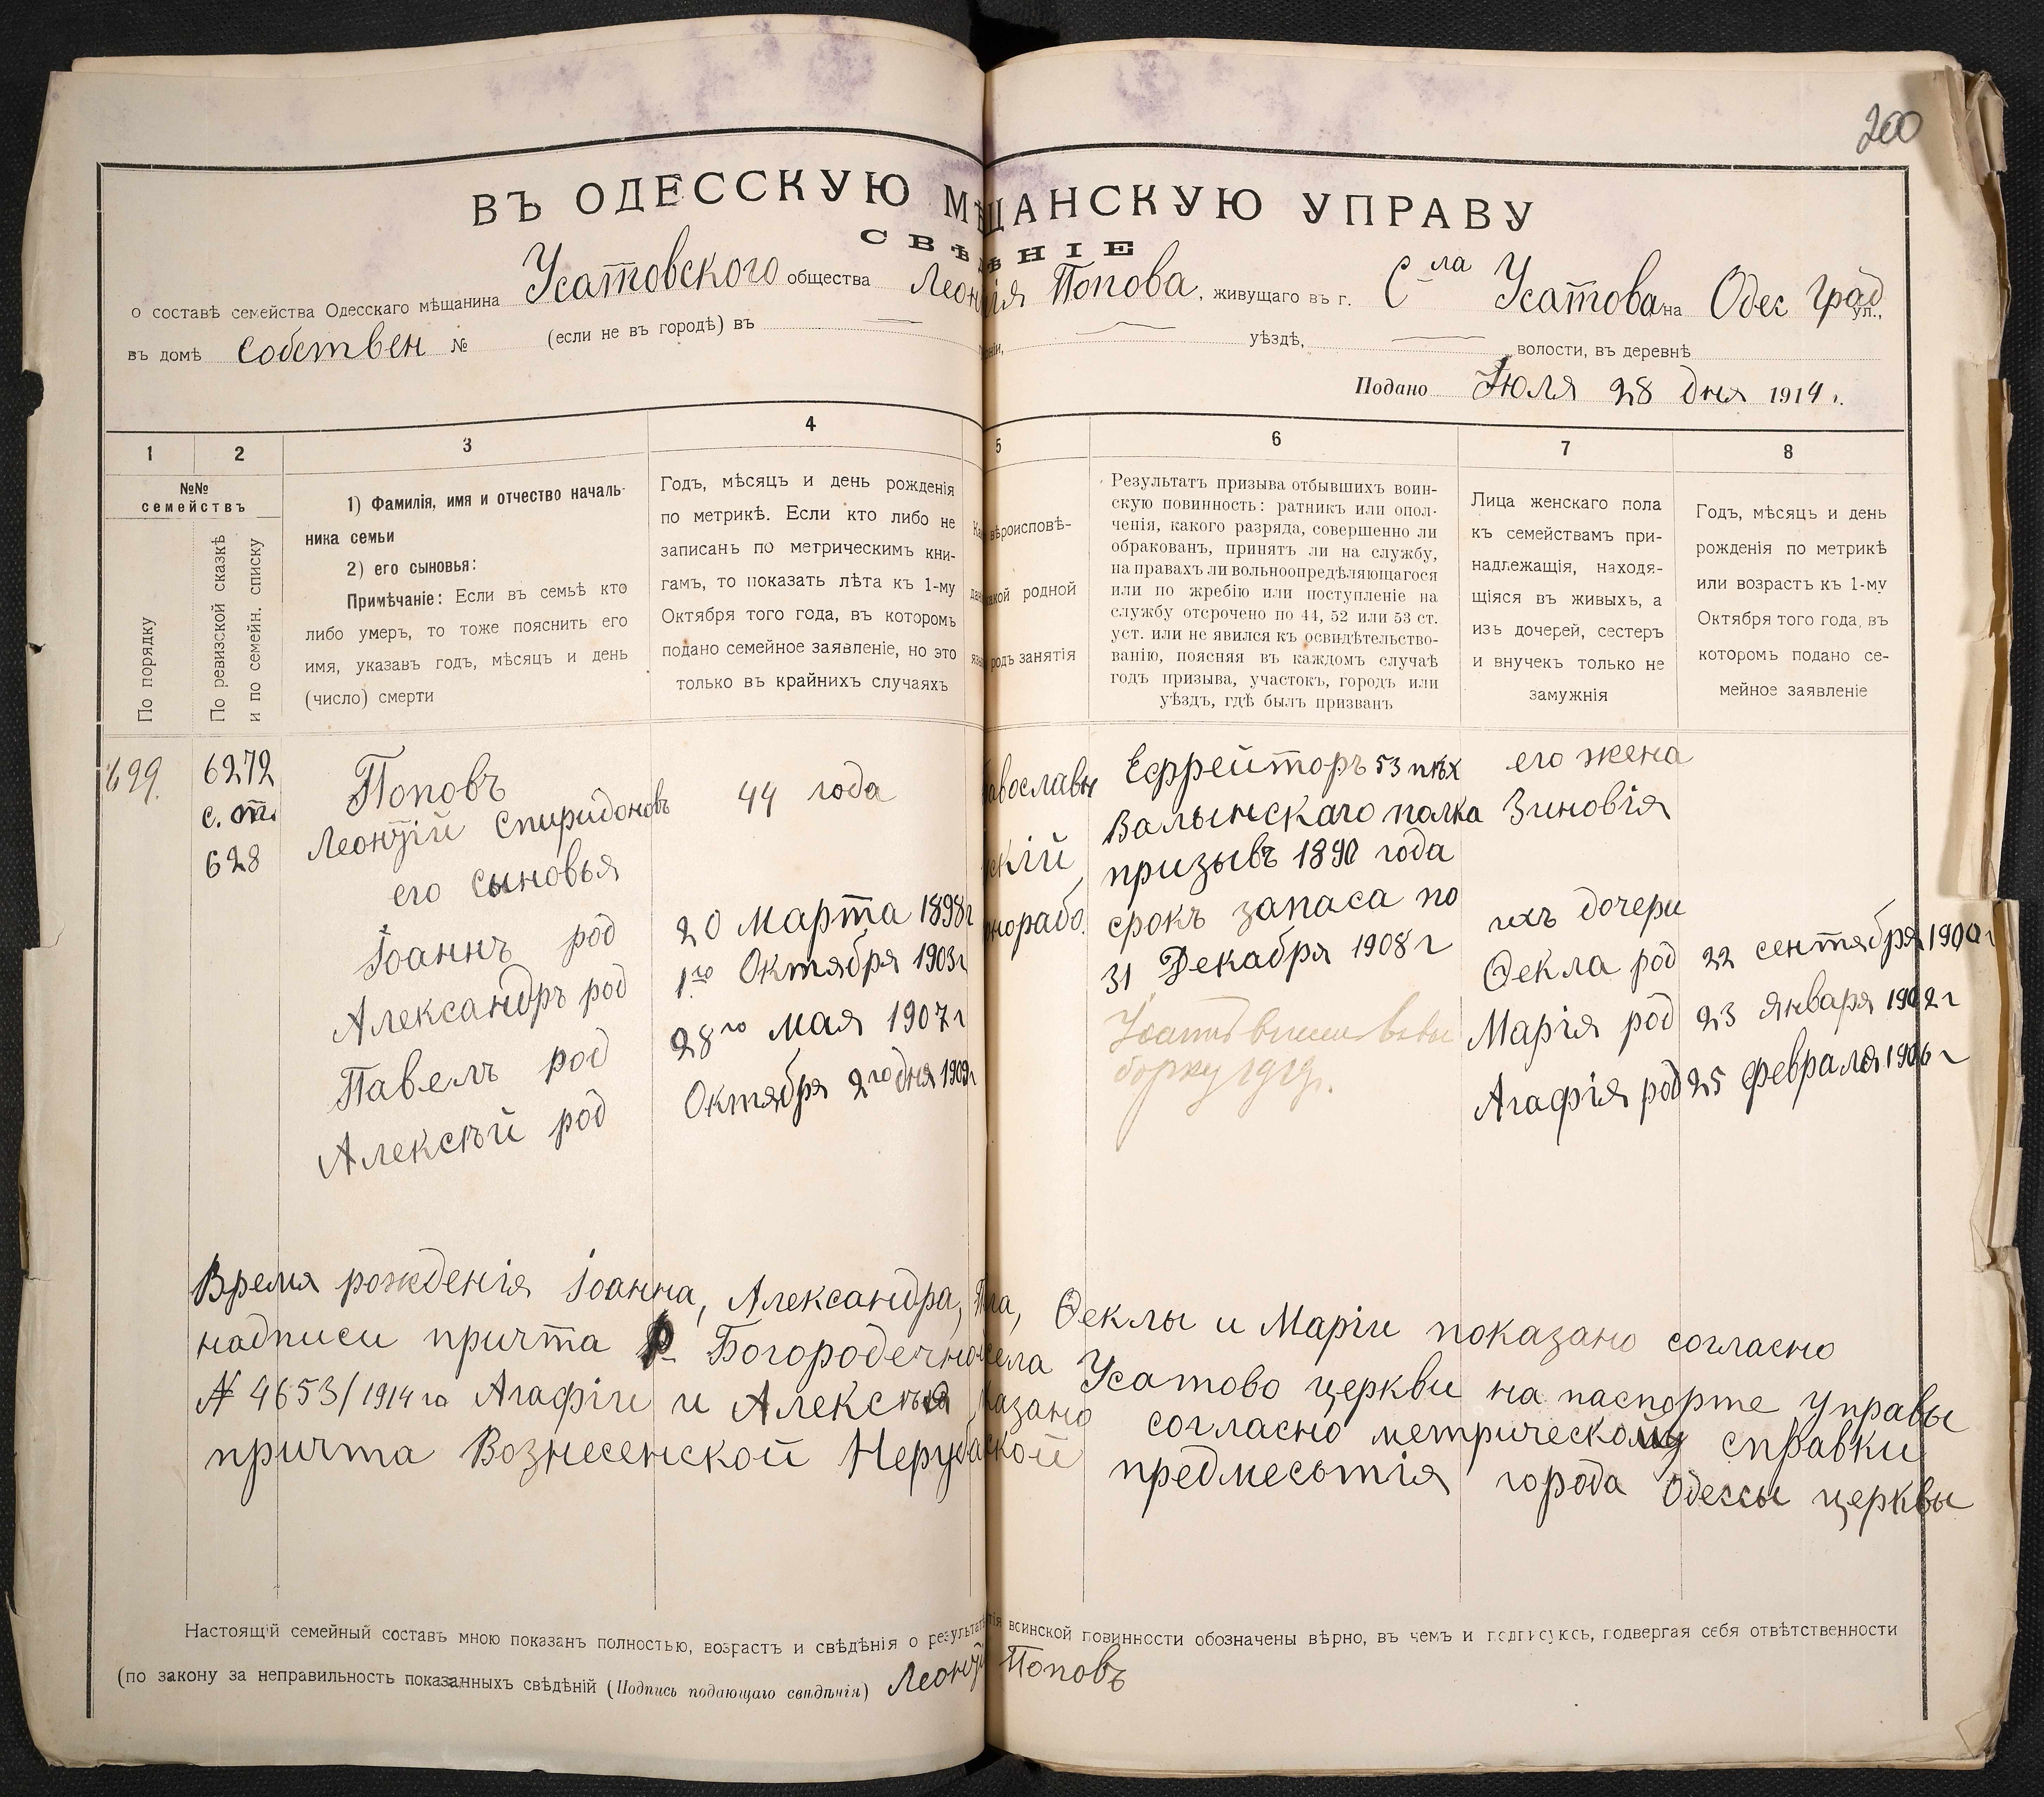 200
ВЪ ОДЕССКУЮ МѢЩАНСКУЮ УПРАВУ
СВѢДѢНІЕ
о составѣ семейства Одесскаго мѣщанина Усатовского общества Леонтія Попова, живущаго въ г. С-ла Усатова на Одес Град ул.,
въ домѣ собствен № (если не въ городѣ) въ уѣздѣ, волости, въ деревнѣ
Подано Іюля 28 дня 1914 г.
1 2 3 4 5 6 7 8
№№ семействъ
По порядку
По ревизской сказкѣ и по семейн. списку
1) Фамилія, имя и отчество началь-
ника семьи
2) его сыновья:
Примѣчаніе: Если въ семьѣ кто
либо умеръ, то тоже пояснить его
имя, указавъ годъ, мѣсяцъ и день
(число) смерти
Годъ, мѣсяцъ и день рожденія
по метрикѣ. Если кто либо не
записанъ по метрическимъ кни-
гамъ, то показать лѣта къ 1-му
Октября того года, въ которомъ
подано семейное заявленіе, но это
только въ крайнихъ случаяхъ
вѣроисповѣ-
какой родной
родъ занятія
Результатъ призыва отбывшихъ воин-
скую повинность: ратникъ или опол-
ченія, какого разряда, совершенно ли
обракованъ, принятъ ли на службу,
на правахъ ли вольноопредѣляющагося
или по жребію или поступленіе на
службу отсрочено по 44, 52 или 53 ст.
уст. или не явился къ освидѣтельство-
ванію, поясняя въ каждомъ случаѣ
годъ призыва, участокъ, городъ или
уѣздъ, гдѣ былъ призванъ
Лица женскаго пола
къ семействамъ при-
надлежащія, находя-
щіяся въ живыхъ, а
изъ дочерей, сестеръ
и внучекъ только не
замужнія
Годъ, мѣсяцъ и день
рожденія по метрикѣ
или возрастъ къ 1-му
Октября того года, въ
которомъ подано се-
мейное заявленіе
699.
6272
с. ст.
628
Поповъ
Леонтій Спиридоновъ
его сыновья
Іоаннъ род
Александръ род
Павелъ род
Алексѣй род
44 года
20 Марта 1898 г
1го Октября 1903 г
28го мая 1907 г
Октября 2го дня 1909 г
авославн
скій
норабо.
Ефрейторъ 53 пѣх
Валынскаго полка
призывъ 1890 года
срокъ запаса по
31 Декабря 1908 г
1919 г.
его жена
Зиновія
ихъ дочери
Ѳекла род 22 сентября 1900 г
Марія род 23 января 1902 г
Агафія род 25 февраля 1906 г
Время рожденія Іоанна, Александра, Ѳеклы и Маріи показано согласно
надписи причта Богородечно села Усатово церкви на паспорте Управы
№ 4653/1914 го Агафіи и Алексѣя казано согласно метрическому справки
причта Вознесенской предместія города Одессы церквы
Настоящій семейный составъ мною показанъ полностью, возрастъ и свѣдѣнія о воинской повинности обозначены вѣрно, въ чемъ и подписуюсь, подвергая себя отвѣтственности
(по закону за неправильность показанныхъ свѣдѣній (Подпись подающаго свѣдѣнія) Леонтій Поповъ